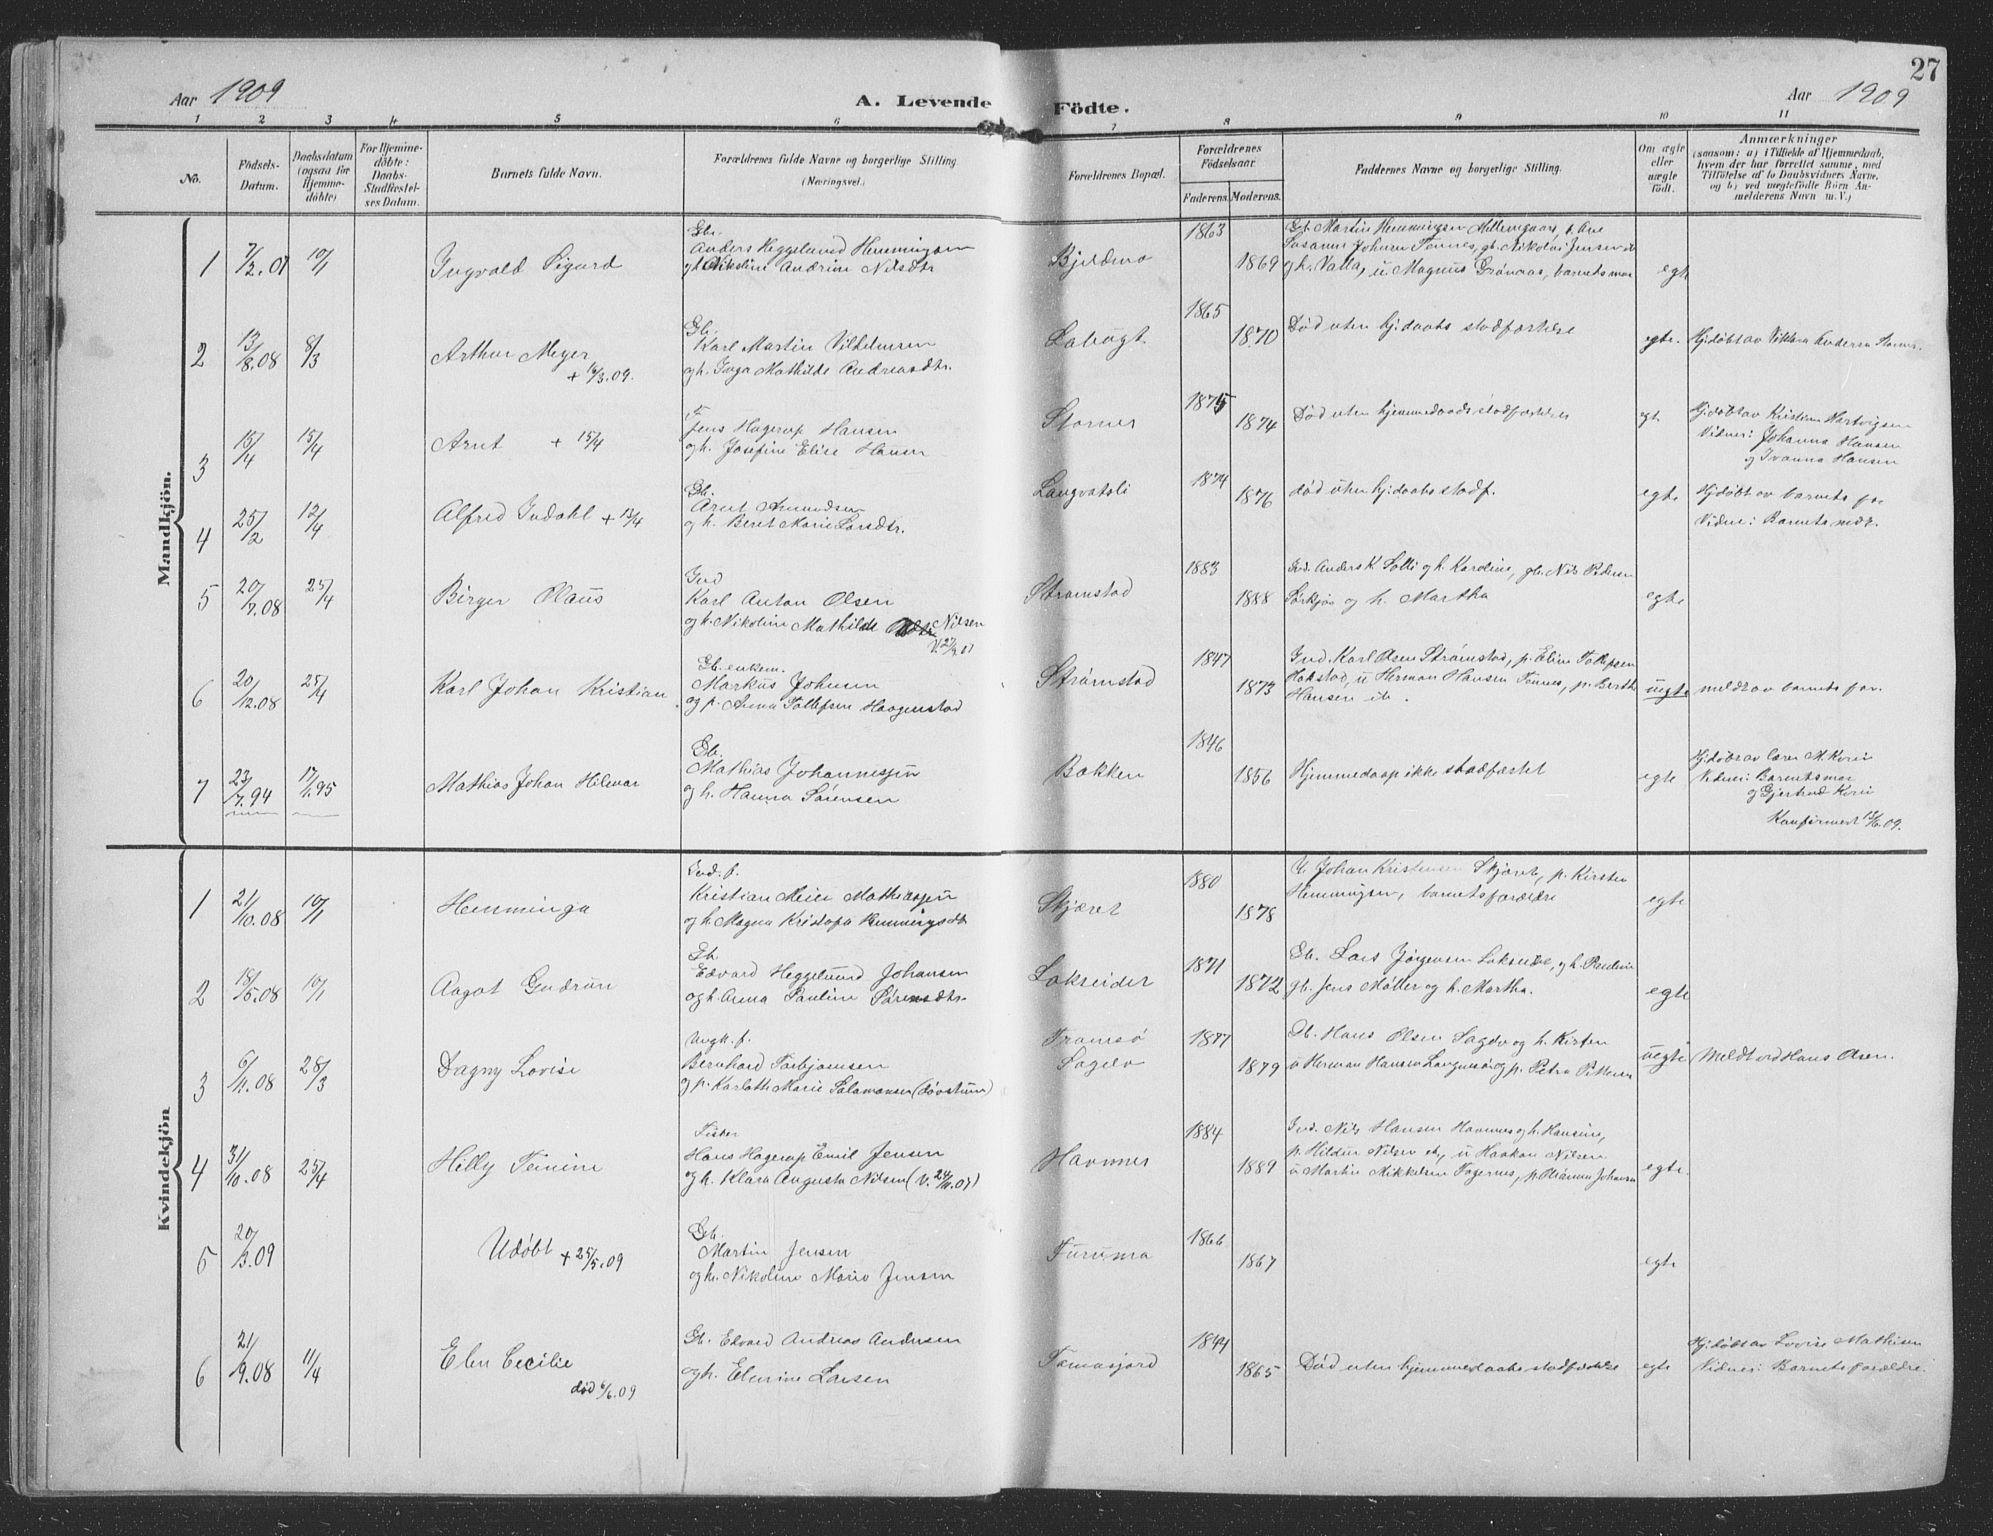 27
Aar 1909
A. Levende Födte.
Aar 1909
1 2 3 4 5 6 7 8 9 10 11
No.
Födsels-Datum.
Daabsdatum (ogsaa for Hjemme-döbte)
For Hjemme-döbte: Daabs-Stadfæstel-ses Datum.
Barnets fulde Navn.
Forældrenes fulde Navne og borgerlige Stilling (Næringsvei.)
Forældrenes Bopæl.
Forældrenes Födselsaar
Faderens. Moderens.
Faddernes Navne og borgerlige Stilling.
Om ægte eller uægte födt.
Anmærkninger
(saasom: a) i Tilfælde af Hjemmedaab,
hvem der har forrettet samme, med
Tilföielse af to Daabsvidners Navne,
og b) ved uægtefödte Börn An-
melderens Navn m. V.)
Mandkjön.
1 10/1 Ingvald Sigurd
Gbr.
Anders Heggelund Henningsen
og h. Nikoline Andrine Nilsdtr
1863
1869
egte
2 13/8.08 8/3 Arthur Meyer
+ 16/3.09.
Gb.
Karl Martin Vilhelmsen
og h. Inga Mathilde Andreasdtr.
Labugt.
1865
1870
Död uten hj.daabs stadfæstelse
egte.
Hj.döbt av
3 15/4 15/4 Arnt + 15/4
F
Jens Hagerup Hansen
og h. Josefine Elise Hansen
Stornes
1875
1874
Död uten hjemmedaabs stadfæstelse
egt.
Hj.döbt av Kristian Hartvigsen
Vidner: Johanna Hansen
og Ivanna Hansen
4 25/2 12/4 Alfred Indahl + 13/4
Gb.
Arnt Amundsen
og h. Beret Marie Larsdtr.
Langvatsli
1874
1876
död uten hj.daabs stadf.
egte
Hj.döbt av barnets far
Vidne: Barnets mor.
5 20/7.08 25/4 Birger Olaus
Ind
Karl Anton Olsen
og h. Nikoline Mathilde Nilsen
Strømstad
1883
1888
Ind. Anders K. Solli og h. Kardine, gb. Nils Pedersen
Sørkjos og h. Martha
egte
6 20/12.08 25/4 Karl Johan Kristian
Gb. enkem.
Markus Johnsen
og p. Anna Tollefsen Haagenstad
Strømstad
1847
1873
Ind. Karl Olsen Strømstad, p. Eline Tollefsen
Hakstad, u Herman Hansen Tennes, p. Berth
Hansen ib.
uegte
meldt av barnets far.
7 23/7.94 17/1.95 Mathias Johan Hilmar
Gb.
Mathias Johannessen
og h. Hanna Sørensen
Bakken
1846
1856
Hjemmedaap ikke stadfæstet
egte
Hj.döbt av lærer M. Koren
Vidner: Barnets mor
og Gjertrud Koren
Konfirmert 13/6.09.
Kvindekjön
1 21/10.08 10/1 Hemminga
Ind. f.
Kristian Meier Mathiassen
og h. Magna Kristofa Hemmingsdtr
Skjæret
1880
1878
U. Johan Kristensen Skjæret, p. Kirsten
Hemmingsen, barnets forældre
egte
2 18/5.08 10/1 Aagot Gudrun
Gb
Edvard Heggelund Johansen
og h. Anna Pauline Sørensdtr.
Lakseider
1871
1872
Gb. Lars Jørgensen Lakseide, og h. Pauline
gb. Jens Møller og h. Martha.
egte
3 6/11.08 28/3 Dagny Lovise
Ungk. f.
Bernhard Torbjørnsen
og p. Karlotte Marie Salamonsen (døvstum)
Tromsö
Sagelv
1877
1879
Gb. Hans Olsen Sagelv og h. Kirsten
u Herman Hansen Langnesör og p. Petra Pettersen
uegte
Meldt ved Hans Olsen.
4 31/10.08 25/4 Hilly
Fisker
Hans Hagerup Emil Jensen
og h. Klara Augusta Nilsen
Havnnes
1884
1889
Ind. Nils Hansen Havnnes og h. Hansine,
p. Hildur Nilsen ib, u Haakon Nilsen
u Martin Mikkelsen Fagernes, p. Johansen
egte
5 20/3.09 Udöbt + 25/5.09
Gb.
Martin Jensen
og h. Nikoline Marie Jensen
Furumo
1866
1867
egte
6 21/9.08 11/4 Elen Cecilie
död 6/6.09
Gb. Edvard Andreas Andersen
og h. Elverine Larsen
Tomasjord
1844
1865
Död uten hjemmedaabs stadfæstelse
egte
Hj.döbt av Lovise Mathisen
Vidner: Barnets forældre.